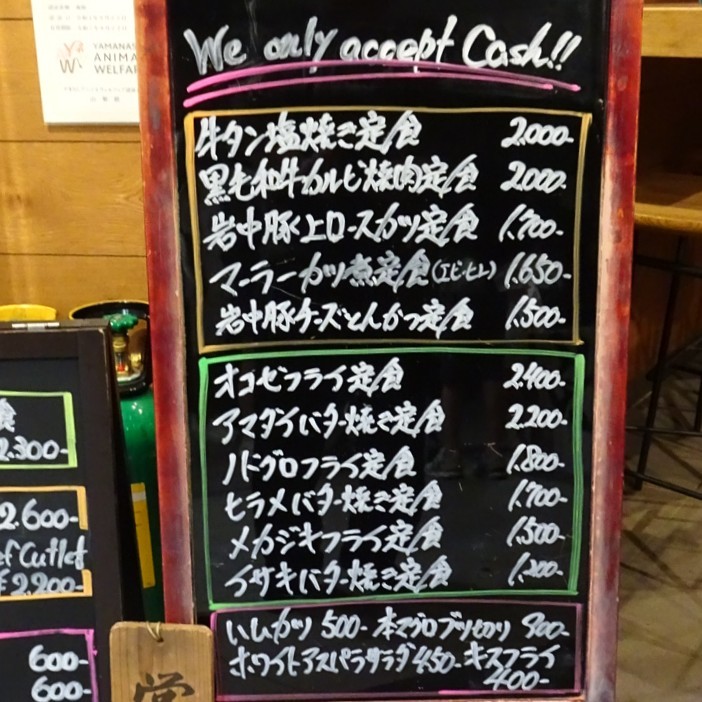 We only accept Cash!!
牛タン塩焼き定食 2,000-
黒毛和牛カルビ焼肉定食 2,000-
岩中豚上ロースカツ定食 1,700-
マーラーカツ煮定食(エビ・ヒレ) 1,650-
岩中豚チーズとんかつ定食 1,500-
オコゼフライ定食 2,400-
アマダイバター焼き定食 2,200-
ノドグロフライ定食 1,800-
ヒラメバター焼き定食 1,700-
メカジキフライ定食 1,500-
イサキバター焼き定食 1,200-
ハムカツ 500- 本マグロブツ切り 900-
ホワイトアスパラサラダ 450- キスフライ
400-
YAMANAS
ANIMA
WELFAR
食
2,300-
2,600-
ef Cutlet
¥2,200-
600-
600-